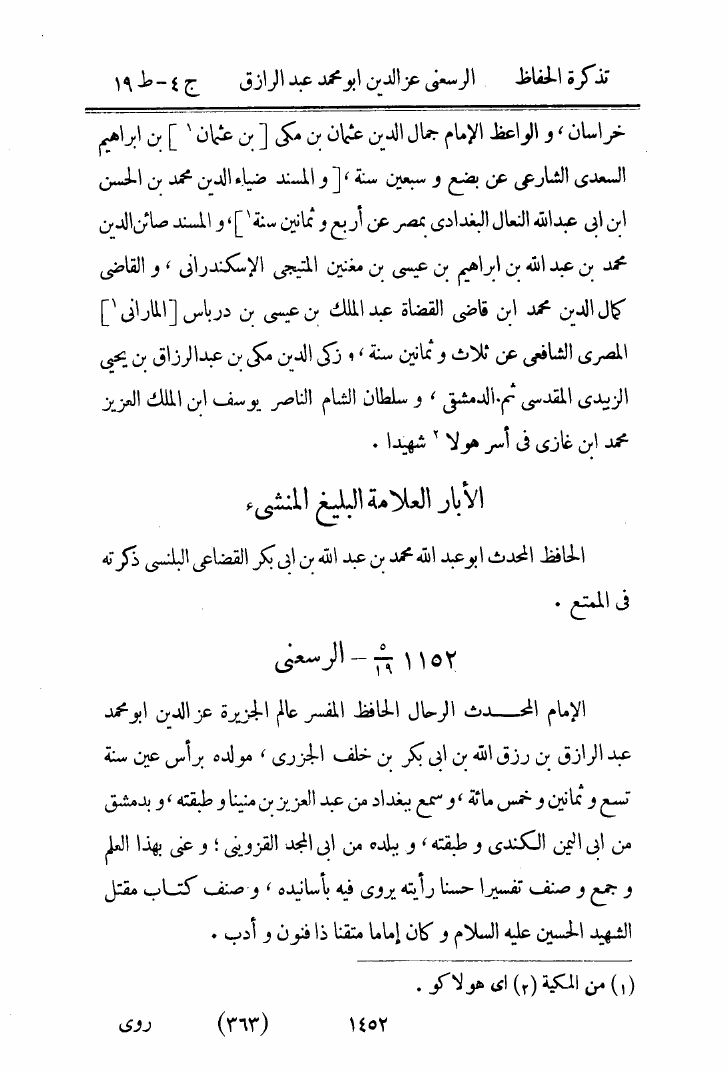 تذكرة الحفاظ الرسعنى عز الدين ابو محمد عبد الرازق ج ٤ - ط ١٩
خراسان، و الواعظ الإمام جمال الدين عثمان بن مكى [ بن عثمان ١ ] بن ابراهيم
السعدى الشارعى عن بضع و سبعين سنة، [ و المسند ضياء الدين محمد بن الحسن
ابن ابى عبدالله النعال البغدادى بمصر عن أربع و ثمانين سنة ١ ]، و المسند صائن الدين
محمد بن عبد الله بن ابراهيم بن عيسى بن مغنين المتيجى الإسكندرانى، و القاضى
كمال الدين محمد ابن قاضى القضاة عبد الملك بن عيسى بن درباس [ المارانى ١ ]
المصرى الشافعى عن ثلاث و ثمانين سنة، و زكى الدين مكى بن عبدالرزاق بن يحيى
الزبيدى المقدسى ثم الدمشقى، و سلطان الشام الناصر يوسف ابن الملك العزيز
محمد ابن غازى فى أسر هولا ٢ شهيدا .
الأبار العلامة البليغ المنشىء
الحافظ المحدث ابو عبد الله محمد بن عبد الله بن ابى بكر القضاعى البلنسى ذكرته
فى الممتع .
١١٥٢ ٥/١٩ - الرسعنى
الإمام المحـدث الرحال الحافظ المفسر عالم الجزيرة عز الدين ابو محمد
عبد الرازق بن رزق الله بن ابى بكر بن خلف الجزرى، مولده برأس عين سنة
تسع و ثمانين و خمس مائة، و سمع ببغداد من عبد العزيز بن منينا و طبقته، و بدمشق
من ابى اليمن الكندى و طبقته، و ببلده من ابى المجد القزوينى؛ و عنى بهذا العلم
و جمع و صنف تفسيرا حسنا رأيته يروى فيه بأسانيده، و صنف كتـاب مقتل
الشهيد الحسين عليه السلام و كان إماما متقنا ذا فنون و أدب .
(١) من المكية (٢) اى هولاكو .
١٤٥٢ (٣٦٣) روى